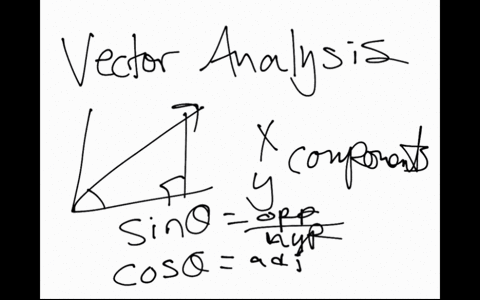 Vector Analysis
X
y components
sinθ = opp/hyp
cosθ = adj